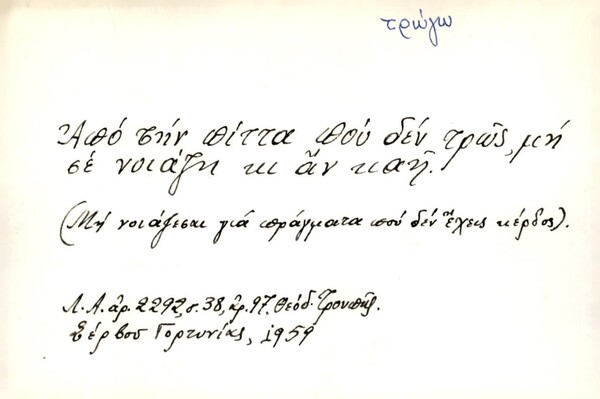 τρώγω
Ἀπό τήν πίττα πού δέν τρῶς, μή
σέ νοιάζη κι ἄν καῆ.
(Μή νοιάζεσαι γιά πράγματα πού δέν ἔχεις κέρδος).
Λ.Α. ἀρ. 2292, σ. 38, ἀρ. 97, Θεόδ. Τρουπῆς.
Σέρβου Γορτυνίας, 1959